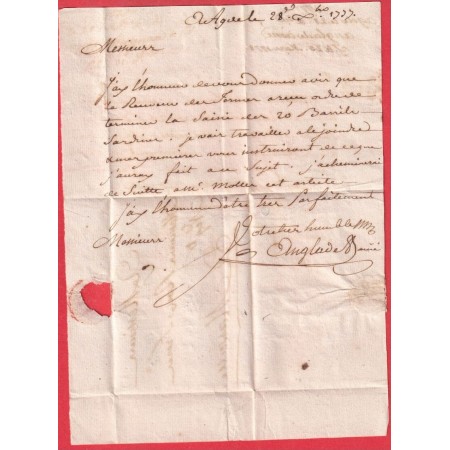 D'Agde le 28 1777.
Messieurs
J'ay l'honneur de vous donner avis que
le Receveur des fermes a reçu ordre de
terminer la Saisie des 20 Barrils
Sardines. je vais travailler a le joindre
vous instruiront de ce que
j'auray fait au Sujet. j'achemineré
de Suitte a Mr. cet article
j'ay l'honneur d'être tres Parfaitement
Messieurs
Votre tres humble
Anglade